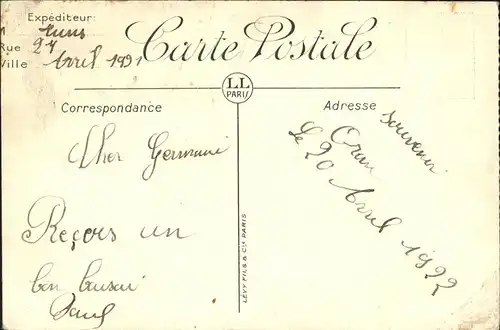 Expéditeur:
Rue 27
Ville Avril 1921
Carte Postale
LL
PARIS
Correspondance
Adresse
Cher Germaine
Reçois un
bon baiser
Paul
souvenir
Oran
Le 20 Avril 1922
LÉVY FILS & Cie PARIS.